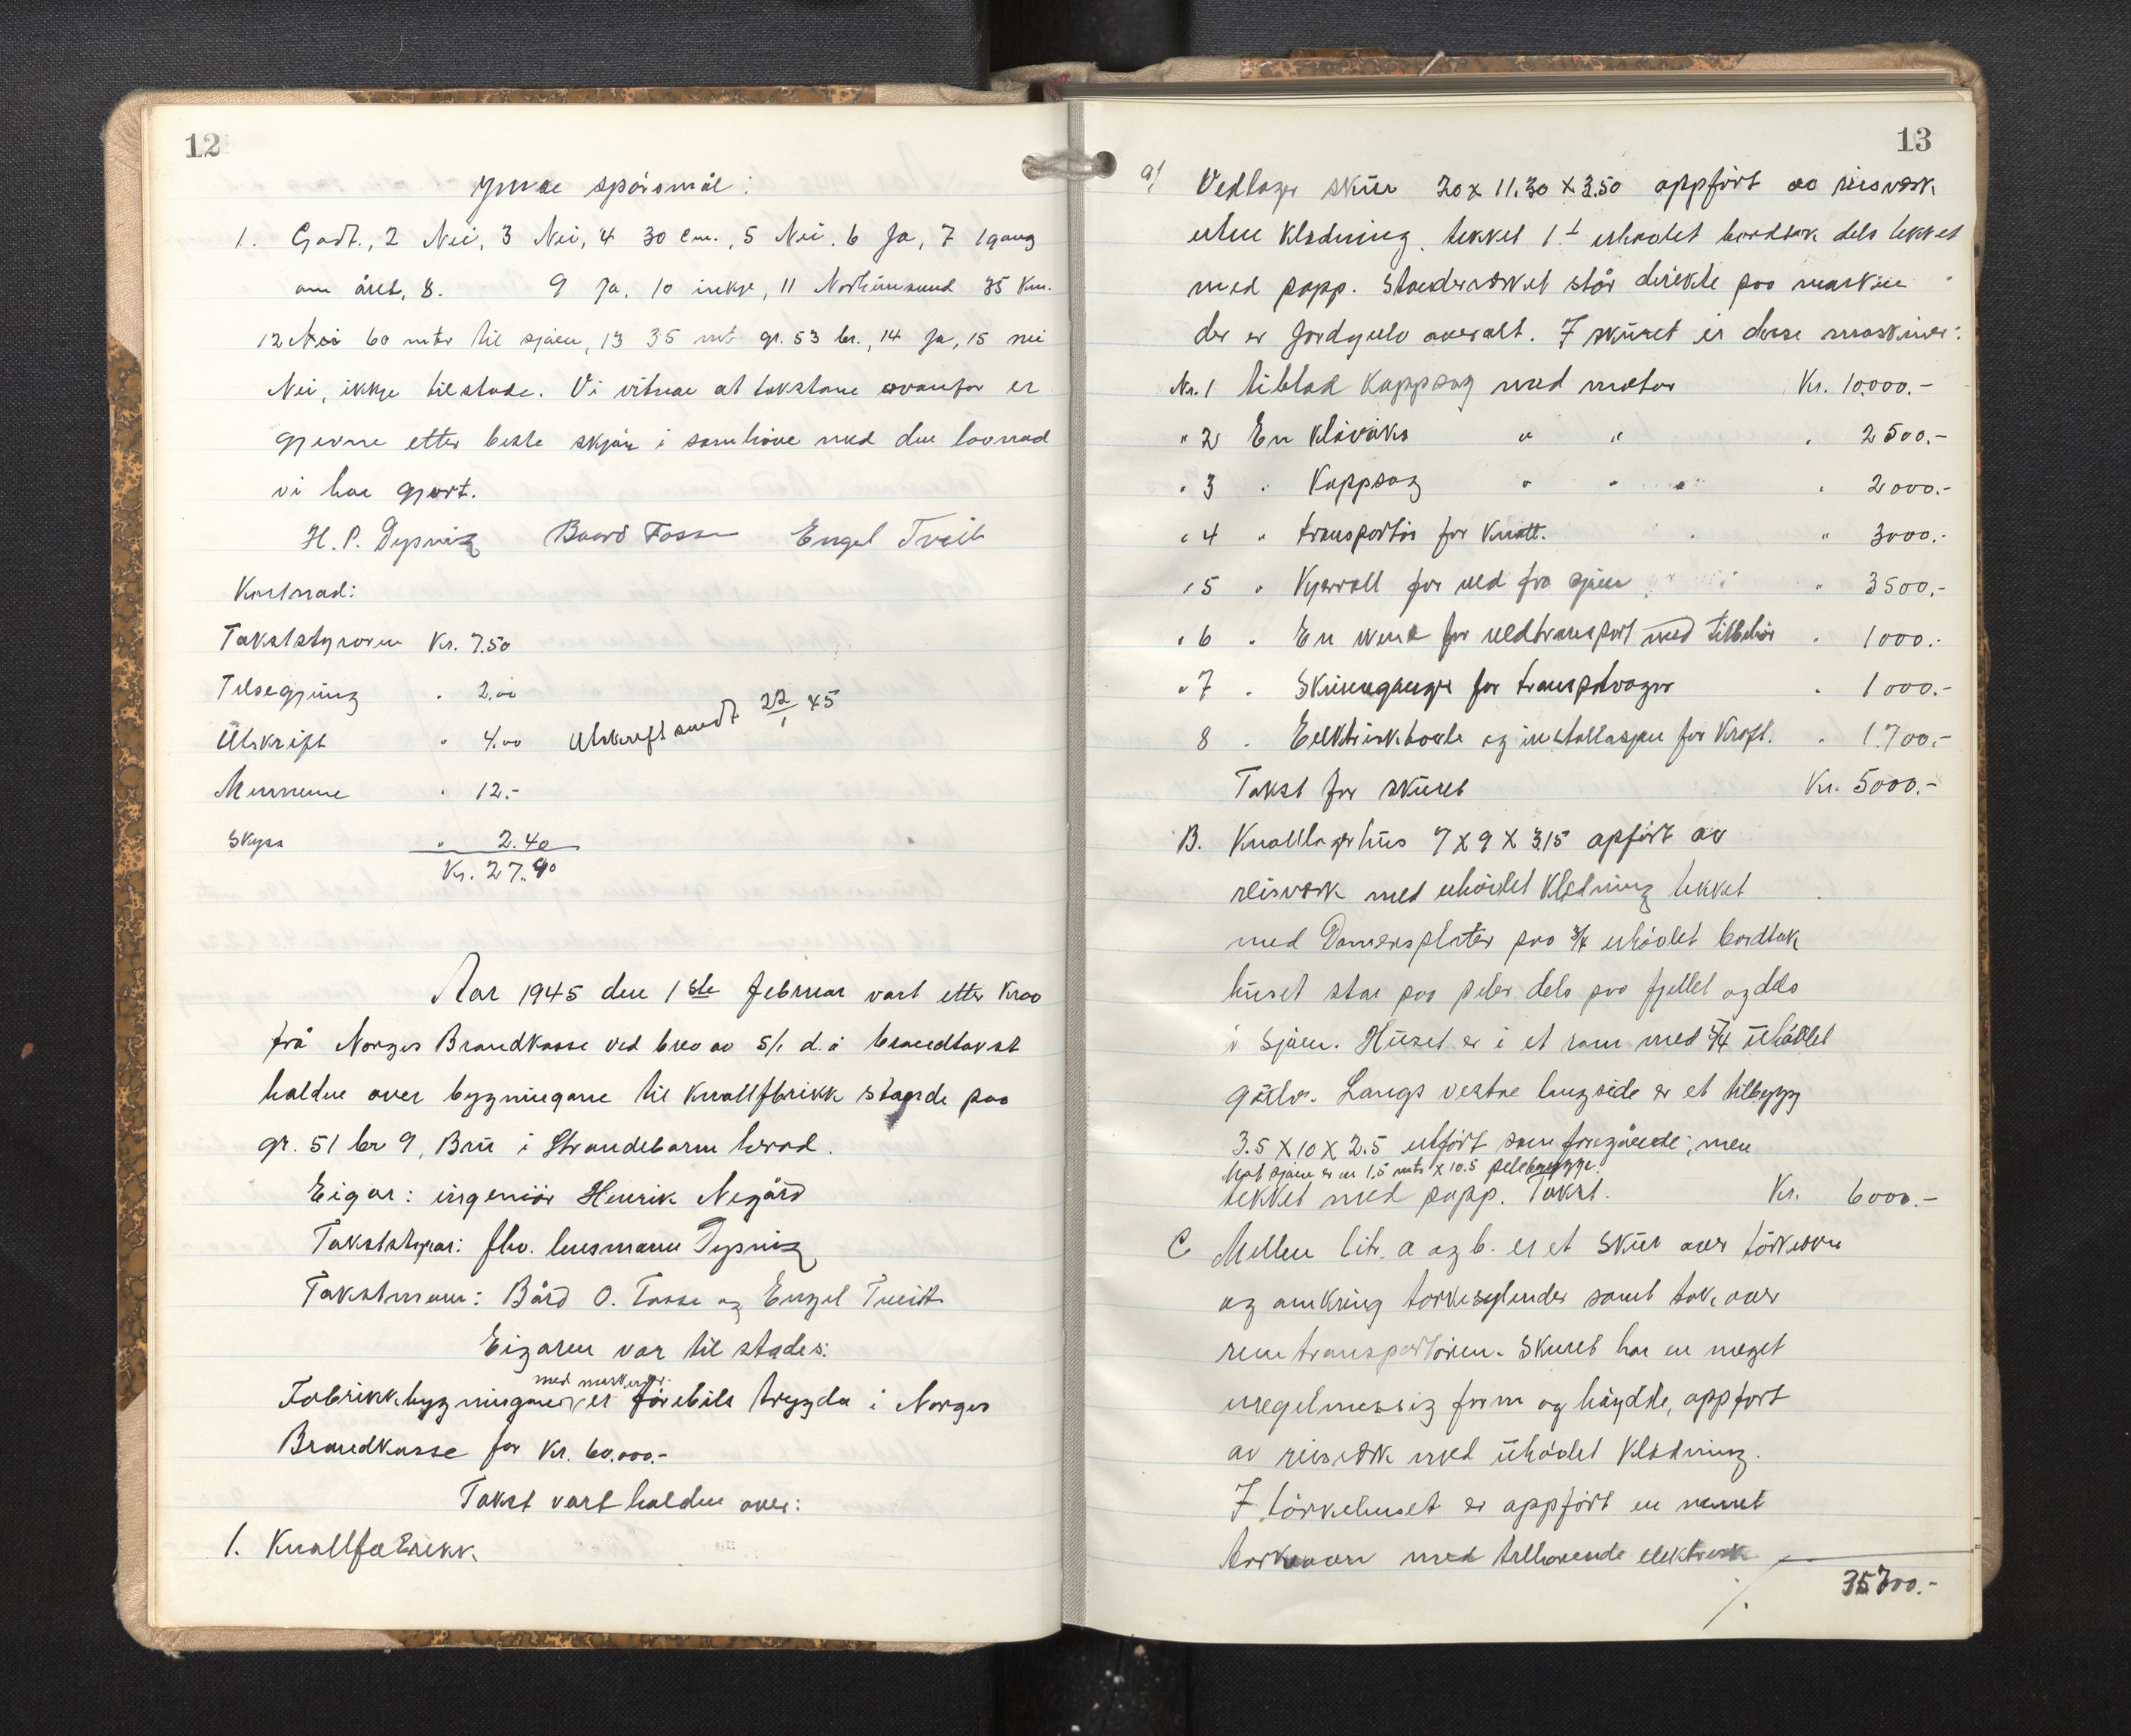 12
Ymse spörsmål:
1. Godt., 2 Nei, 3 Nei, 4 30 cm., 5 Nei. 6 Ja, 7 1 gang
om året, 8. 9 Ja, 10 inkje, 11 Norheimsund 35 Km.
12 Nei 60 mtr til sjöen, 13 35 mt gr. 53 br., 14 Ja, 15 nei
Nei, ikkje tilstade. Vi vitnar at takstane ovanfor er
gjevne etter beste skjön i samhöve med den lovnad
vi har gjort.
H. P. Dysvig Baard Fosse Engel Tveit
Kostnad:
Takststyraren Kr. 7.50
Tilsegjing " 2.00
Utskrift " 4.00 Utskrift sendt 22/1 45
Mennene " 12.-
Skyss " 2.40
Kr. 27.90
Aar 1945 den 1ste februar vart etter krav
frå Norges Brandkasse ved brev av 5/1 d.å brandtakst
halden over bygningane til Knallfbrikk staande paa
gr. 51 br 9, Bru i Strandebarm herad.
Eigar: ingeniör Henrik Negård
Takststyrar: fhv. lensmann Dysvig
Takstmenn: Bård O. Fosse og Engel Tveit
Eigaren var til stades:
med maskiner
Fabrikkbygningane er förebils trygda i Norges
Brandkasse for Kr. 60.000.-
Takst vart halden over:
1. Knallfabrikk.
13
a/ Vedlager skur 20 x 11.30 x 3.50 oppfört av reisverk
uten kledning. tekket 1" uhövlet bordtak dels tekket
med papp. Stenderverket står direkte paa marken
der er jordgulv overalt. I skuret er disse maskiner:
Nr. 1 kappsag med motor Kr. 10.000.-
" 2 En klöveks " " " 2500.-
" 3 " Kappsag " " " 2000.-
" 4 " transportör for Knott. " 3000.-
" 5 " Kjerratt for ved fra sjöen " 3500.-
" 6 " En for vedtransport med tilbehör " 1000.-
" 7 " Skinnegange for transpvogner " 1000.-
8 " Eelktrisk tavle og installasjon for Kraft. " 1.700.-
Takst for skuret Kr. 5000.-
B. Knottlagerhus 7 X 9 X 3.15 opfört av
reisverk med uhövlet Kledning tekket
med plater paa 3/4 uhövlet bordtak
huset star paa peler dels paa fjellet og dels
i sjöen. Huset er i et rom med 5/4 uhövlet
golv. Langs vestre langside er et tilbygg
3.5 X 10 X 2.5 utfört som foregående; men
Mot sjöen er en 1.5 mtr X 10.5 pelebrygge.
tekket med papp. Takst. Kr. 6000.-
C Mellem litr. a og b. er et skur over törkeovn
og omkring torkesylinder samt tak over
rem transportören. Skuret har en meget
uregelmessig form og höydde, oppfort
av reisverk med uhövlet Kledning.
I törkehuset er oppfört en muret
torkeovn med tilhorende elektrisk
35700.-